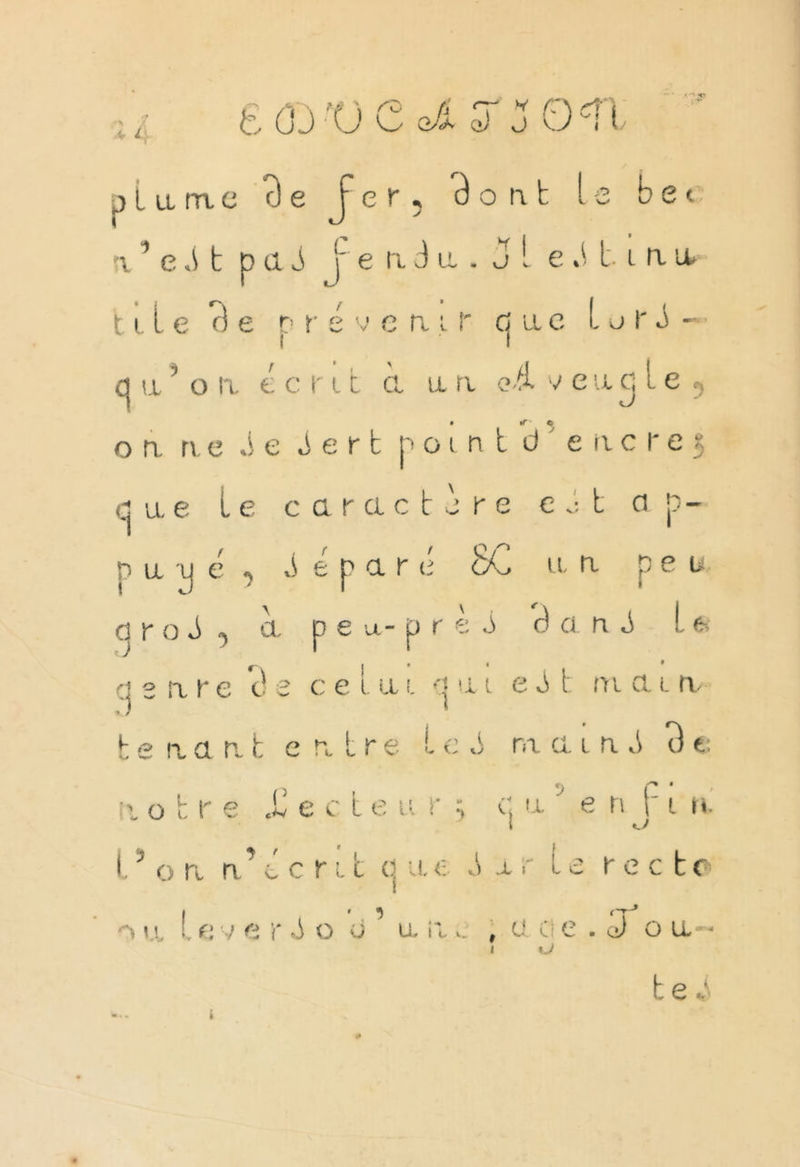 24 EDUCATION
plume de fer, dont le bec
n'est pas fendu. Il est inu-
tile de prévenir que lors-
qu'on écrit à un Aveugle,
on ne se sert point d'encre;
que le caractère est ap-
puyé, séparé & un peu
gros, à peu-près dans le
genre de celui qui est main
tenant entre les mains de
notre Lecteur; qu'enfin
l'on n'écrit que sur le recto
ou le verso d'une page. Tou-
tes